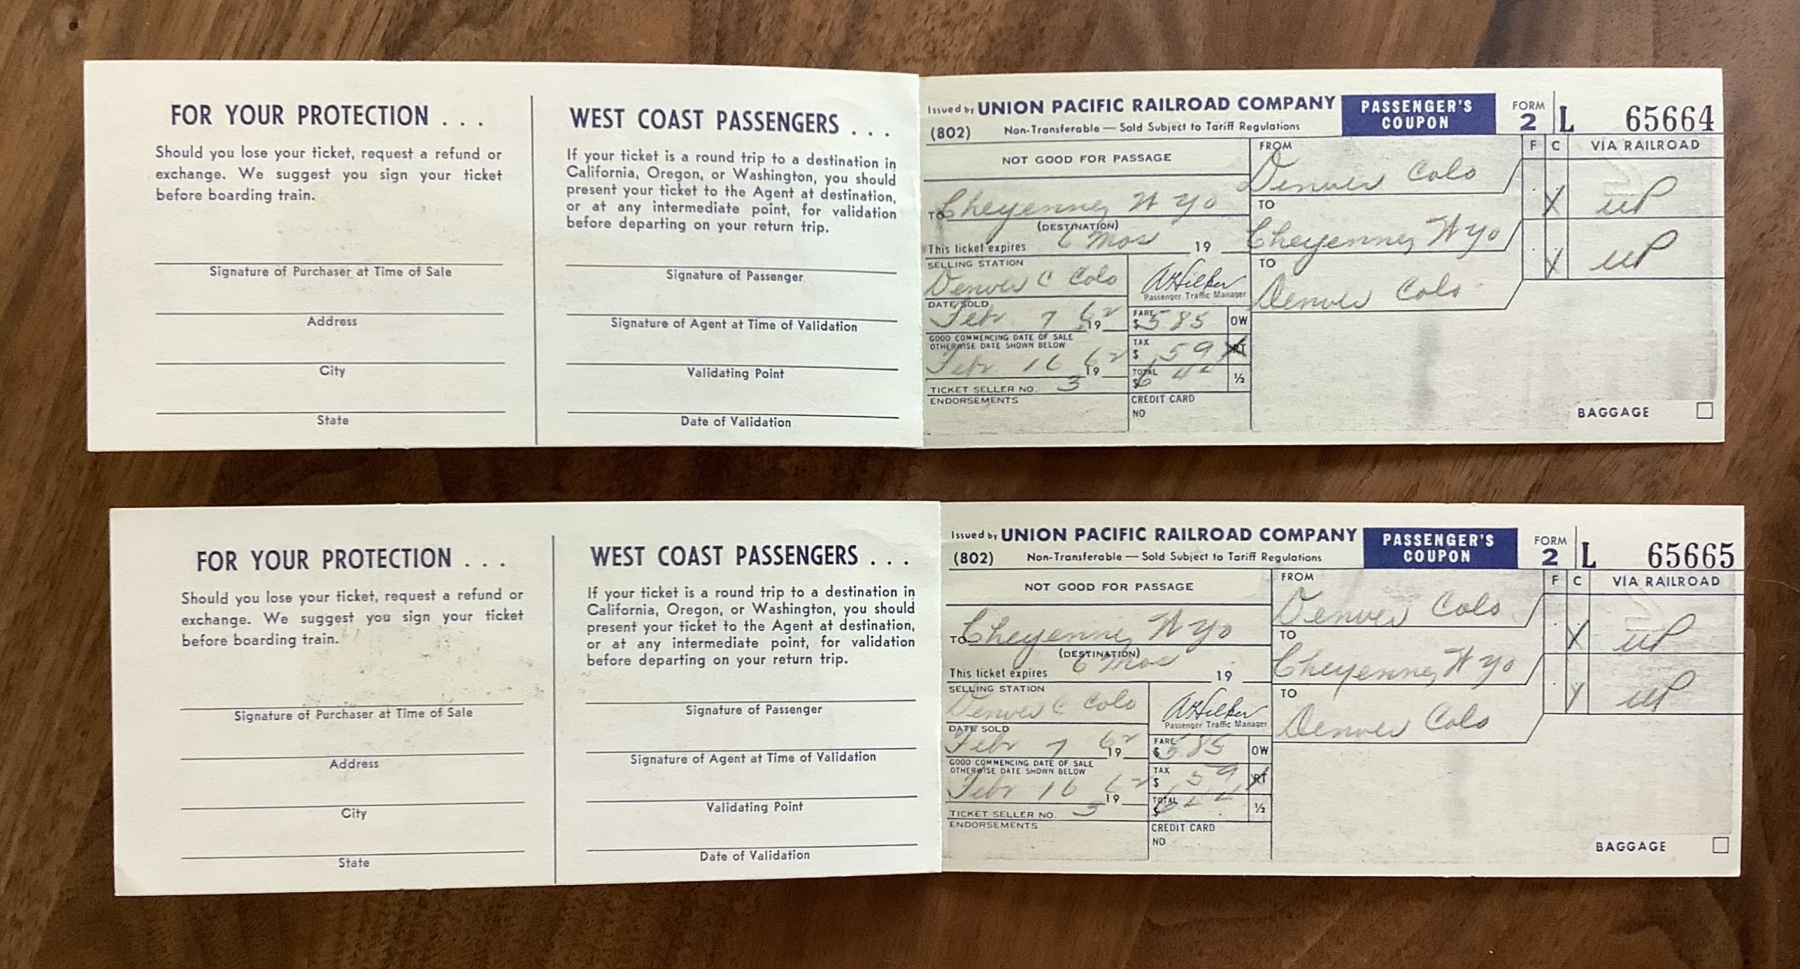 FOR YOUR PROTECTION . . .
Should you lose your ticket, request a refund or
exchange. We suggest you sign your ticket
before boarding train.
Signature of Purchaser at Time of Sale
Address
City
State
WEST COAST PASSENGERS . . .
If your ticket is a round trip to a destination in
California, Oregon, or Washington, you should
present your ticket to the Agent at destination,
or at any intermediate point, for validation
before departing on your return trip.
Signature of Passenger
Signature of Agent at Time of Validation
Validating Point
Date of Validation
Issued by UNION PACIFIC RAILROAD COMPANY
(802) Non-Transferable — Sold Subject to Tariff Regulations
PASSENGER'S
COUPON
FORM
2
L 65664
NOT GOOD FOR PASSAGE
TO Cheyenne, Wyo
(DESTINATION)
This ticket expires 6 Mos 19
SELLING STATION
Denver C Colo
DATE SOLD
Feb 7 1962
GOOD COMMENCING DATE OF SALE
OTHERWISE DATE SHOWN BELOW
Feb 16 1962
TICKET SELLER NO. 3
ENDORSEMENTS
Passenger Traffic Manager
FARE
$ 5 85 OW
TAX
$ .59 RT
TOTAL
$ 6 44 ½
CREDIT CARD
NO
FROM
Denver Colo
TO
Cheyenne, Wyo
TO
Denver Colo
F C VIA RAILROAD
X UP
X UP
BAGGAGE
FOR YOUR PROTECTION . . .
Should you lose your ticket, request a refund or
exchange. We suggest you sign your ticket
before boarding train.
Signature of Purchaser at Time of Sale
Address
City
State
WEST COAST PASSENGERS . . .
If your ticket is a round trip to a destination in
California, Oregon, or Washington, you should
present your ticket to the Agent at destination,
or at any intermediate point, for validation
before departing on your return trip.
Signature of Passenger
Signature of Agent at Time of Validation
Validating Point
Date of Validation
Issued by UNION PACIFIC RAILROAD COMPANY
(802) Non-Transferable — Sold Subject to Tariff Regulations
PASSENGER'S
COUPON
FORM
2
L 65665
NOT GOOD FOR PASSAGE
TO Cheyenne, Wyo
(DESTINATION)
This ticket expires 6 Mos 19
SELLING STATION
Denver C Colo
DATE SOLD
Feb 7 1962
GOOD COMMENCING DATE OF SALE
OTHERWISE DATE SHOWN BELOW
Feb 16 1962
TICKET SELLER NO. 3
ENDORSEMENTS
Passenger Traffic Manager
FARE
$ 5 85 OW
TAX
$ 59 RT
TOTAL
$ 6 44 ½
CREDIT CARD
NO
FROM
Denver Colo
TO
Cheyenne, Wyo
TO
Denver Colo
F C VIA RAILROAD
X UP
X UP
BAGGAGE